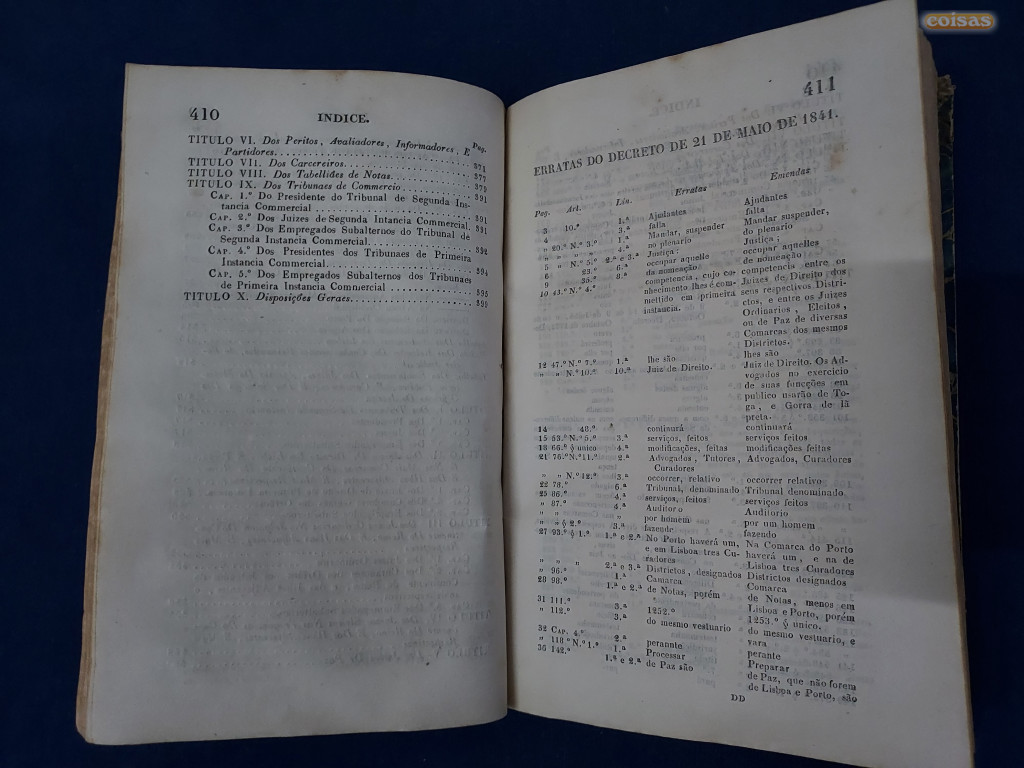 coisas
410 INDICE.
Pag.
TITULO VI. Dos Peritos, Avaliadores, Informadores, E
Partidores. 371
TITULO VII. Dos Carcereiros. 372
TITULO VIII. Dos Tabelliães de Notas. 379
TITULO IX. Dos Tribunaes de Commercio 391
CAP. 1.º Do Presidente do Tribunal de Segunda Ins-
tancia Commercial 391
CAP. 2.º Dos Juizes de Segunda Intancia Commercial. 391
CAP. 3.º Dos Empregados Subalternos do Tribunal de
Segunda Instancia Commercial. 392
CAP. 4.º Dos Presidentes dos Tribunaes de Primeira
Instancia Commercial. 394
CAP. 5.º Dos Empregados Subalternos dos Tribunaes
de Primeira Instancia Commercial 395
TITULO X. Disposições Geraes. 399
411
ERRATAS DO DECRETO DE 21 DE MAIO DE 1841.
Pag. Art. Lin. Erratas Emendas
3 10.º 1.ª Ajudantes Ajudantes
4 3.ª falla falta
" 20.º N.º 3.º 1.ª Mandar, suspender Mandar suspender,
" " " " 4.ª no plenario do plenario
5 " N.º 5.º 2.ª e 3.ª Justiça; Justiça;
6 23.º 6.ª occupar aquelle occupar aquelles
9 35.º 8.ª da nomeação de nomeação
10 43.º N.º 4.º competencia, cujo co- competencia entre os
nhecimento lhes é com- Juizes de Direito dos
mettido em primeira seus respectivos Distri-
instancia. ctos, e entre os Juizes
Ordinarios, Eleitos,
ou de Paz de diversas
Comarcas dos mesmos
Districtos.
12 47.º N.º 7.º 1.ª lhe são lhes são
" " N.º 10.º 10.ª Juiz de Direito. Juiz de Direito. Os Ad-
vogados no exercicio
de suas funcções em
publico usarão de To-
ga, e Gorra de lã
preta.
14 48.º continurá continuará
15 53.º N.º 5.º 3.ª serviços, feitos serviços feitos
18 66.º § unico 4.ª modificações, feitas modificações feitas
21 76.º N.º 11.º 2.ª Advogados, Tutores, Advogados, Curadores
Curadores
" " N.º 12.º 3.ª occorrer, relativo occorrer relativo
22 78.º 6.ª Tribunal, denominado Tribunal denominado
25 86.º 4.ª serviços, feitos serviços feitos
" 87.º 4.ª Auditoro Auditorio
" " " por homem por um homem
" " § 2.º 3.ª fazendo fazendo
27 93.º § 1.º 1.ª e 2.ª No Porto haverá um, Na Comarca do Porto
e em Lisboa tres Cu- haverá um, e na de
radores Lisboa tres Curadores
" " " 2.ª e 3.ª Districtos, designados Districtos designados
" 96.º 1.ª Camarca Comarca
28 98.º 1.ª e 2.ª de Notas, porém de Notas, menos em
Lisboa e Porto, porém
31 111.º 3.ª 1252.º 1253.º § unico.
" 112.º " 3.ª do mesmo vestuario do mesmo vestuario, e
vara
32 CAP. 4.º 2.ª perannte perante
" 118.º N.º 1.º 1.ª Processar Preparar
36 142.º 1.ª e 2.ª de Paz são de Paz, que não forem
de Lisboa e Porto, são
DD